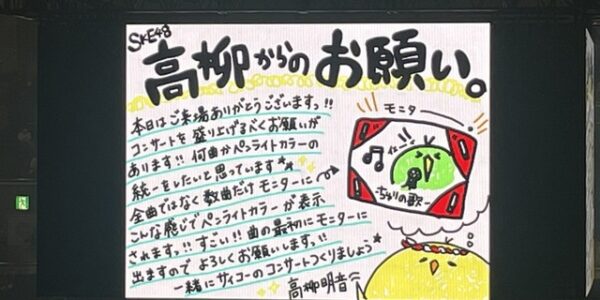 SKE48
高柳からのお願い。
本日はご来場ありがとうございますっ!!
コンサートを盛り上げるべくお願いが
あります!! 何曲かペンライトカラーの
統一をしたいと思っています
全曲ではなく数曲だけモニターに
こんな感じでペンライトカラーが表示
されますっ!!すごい!!曲の最初にモニターに
出ますのでよろしくお願いします。!!
一緒にサイコーのコンサートつくりましょう
高柳明音
モニター
ちゅりの歌